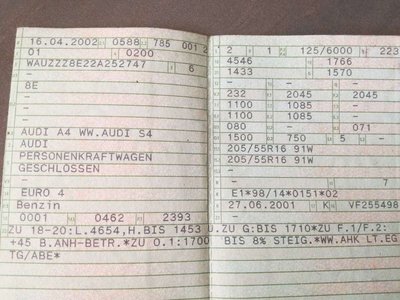 16.04.2002 0588 785 001 2
01 0200
WAUZZZ8E22A252747 6
-
8E
-
-
AUDI A4 WW.AUDI S4
AUDI
PERSONENKRAFTWAGEN
GESCHLOSSEN
-
EURO 4
Benzin
0001 0462 2393
2 1 125/6000 223
4546 1766
1433 1570
- -
232 2045 2045
1100 1085 -
1100 1085 -
080 - 071
1500 750 5 -
205/55R16 91W
205/55R16 91W
-
-
E1*98/14*0151*02
27.06.2001 K VF255498
ZU 18-20:L.4654,H.BIS 1453 U.ZU G:BIS 1710*ZU F.1/F.2:
+45 B.ANH-BETR.*ZU O.1:1700 BIS 8% STEIG.*WW.AHK LT.EG
TG/ABE*